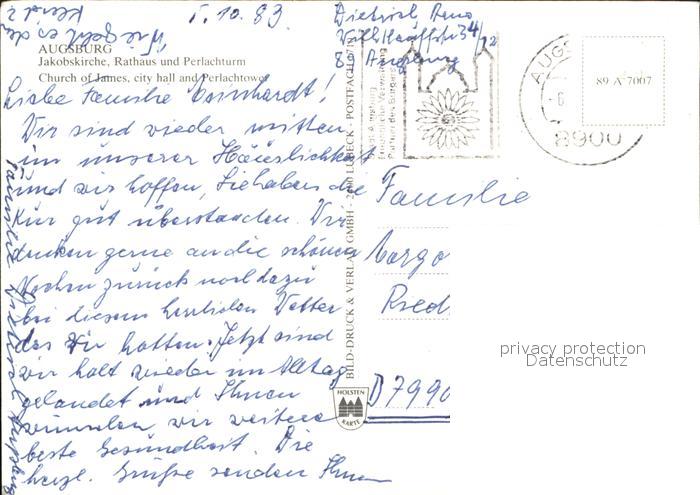 5.10.89
Dietrich
34/12
89 Augsburg
AUGSBURG
Jakobskirche, Rathaus und Perlachturm
Church of James, city hall and Perlachtower
Wie geht es
89 A 7007
AUGS
8900
Liebe Familie
Wir sind wieder mitten
in unserer Häuslichkeit
und wir hoffen, Sie haben die
Kur gut überstanden. Wir
denken gerne an die schönen
Wochen zurück noch dazu
bei diesem herrlichen Wetter
das wir hatten. Jetzt sind
wir halt wieder im Alltag
gelandet und Ihnen
wünschen wir weitere
beste Gesundheit. Die
herzl. Grüße senden Ihnen
Familie Dietrich Augsburg
BILD-DRUCK & VERLAG GMBH · LÜBECK · POSTFACH
Familie
Ried
D 7990
HOLSTEN
KARTE
privacy protection
Datenschutz